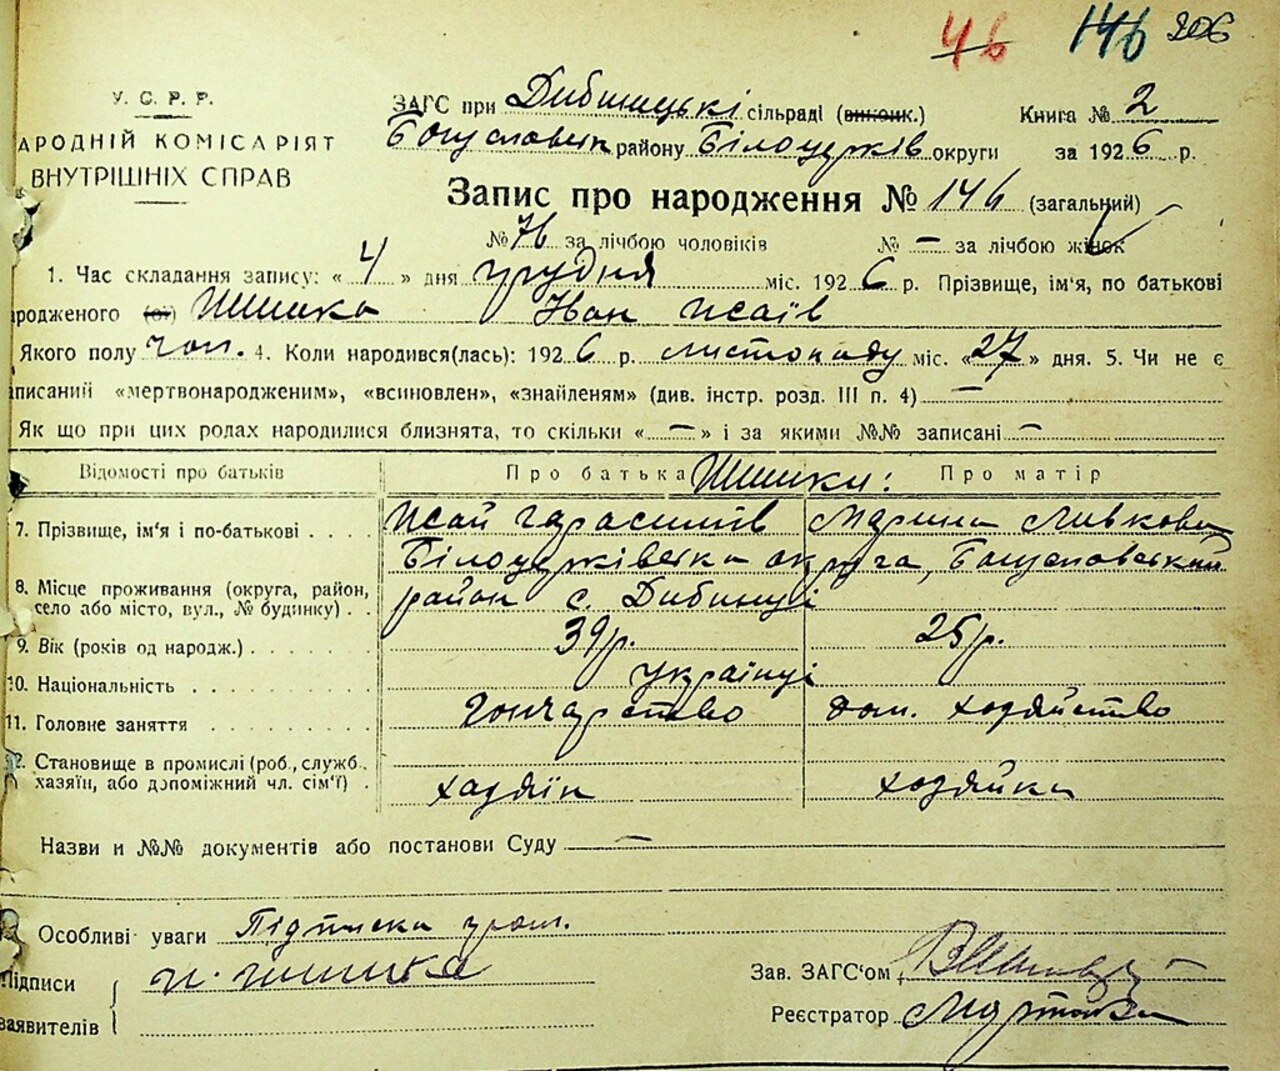 46 146 206
У. С. Р. Р.
АРОДНІЙ КОМІСАРІЯТ
ВНУТРІШНІХ СПРАВ
ЗАГС при Дибинецькі сільраді (виконк.) Книга № 2
Богуславськ району Білоцерків округи за 1926 р.
Запис про народження № 146 (загальний)
№ 76 за лічбою чоловіків № — за лічбою жінок
1. Час складання запису: « 4 » дня грудня міс. 1926 р. Прізвище, ім'я, по батькові
ародженого (ої) Шишка Іван Исаїв
Якого полу чол. 4. Коли народився(лась): 1926 р. листопаду міс. «27» дня. 5. Чи не є
аписаний «мертвонародженим», «всиновлен», «знайленям» (див. інстр. розд. III п. 4) —
Як що при цих родах народилися близнята, то скільки « — » і за якими №№ записані —
Відомості про батьків Про батька Шишки: Про матір
7. Прізвище, ім'я і по-батькові Исай Гарасимів Марина Мивкова
Білоцерківська округа, Богуславський
8. Місце проживання (округа, район, село або місто, вул., № будинку) район с. Дибинці
9. Вік (років од народж.) 39 р. 25 р.
10. Національність українці
11. Головне заняття гончарство дом. хозяйство
12. Становище в промислі (роб., служб. хазяїн, або допоміжний чл. сім'ї) хазяїн хозяйка
Назви и №№ документів або постанови Суду —
Особливі уваги Підписка гром.
Підписи И. Шишка Зав. ЗАГС'ом
заявителів Реєстратор